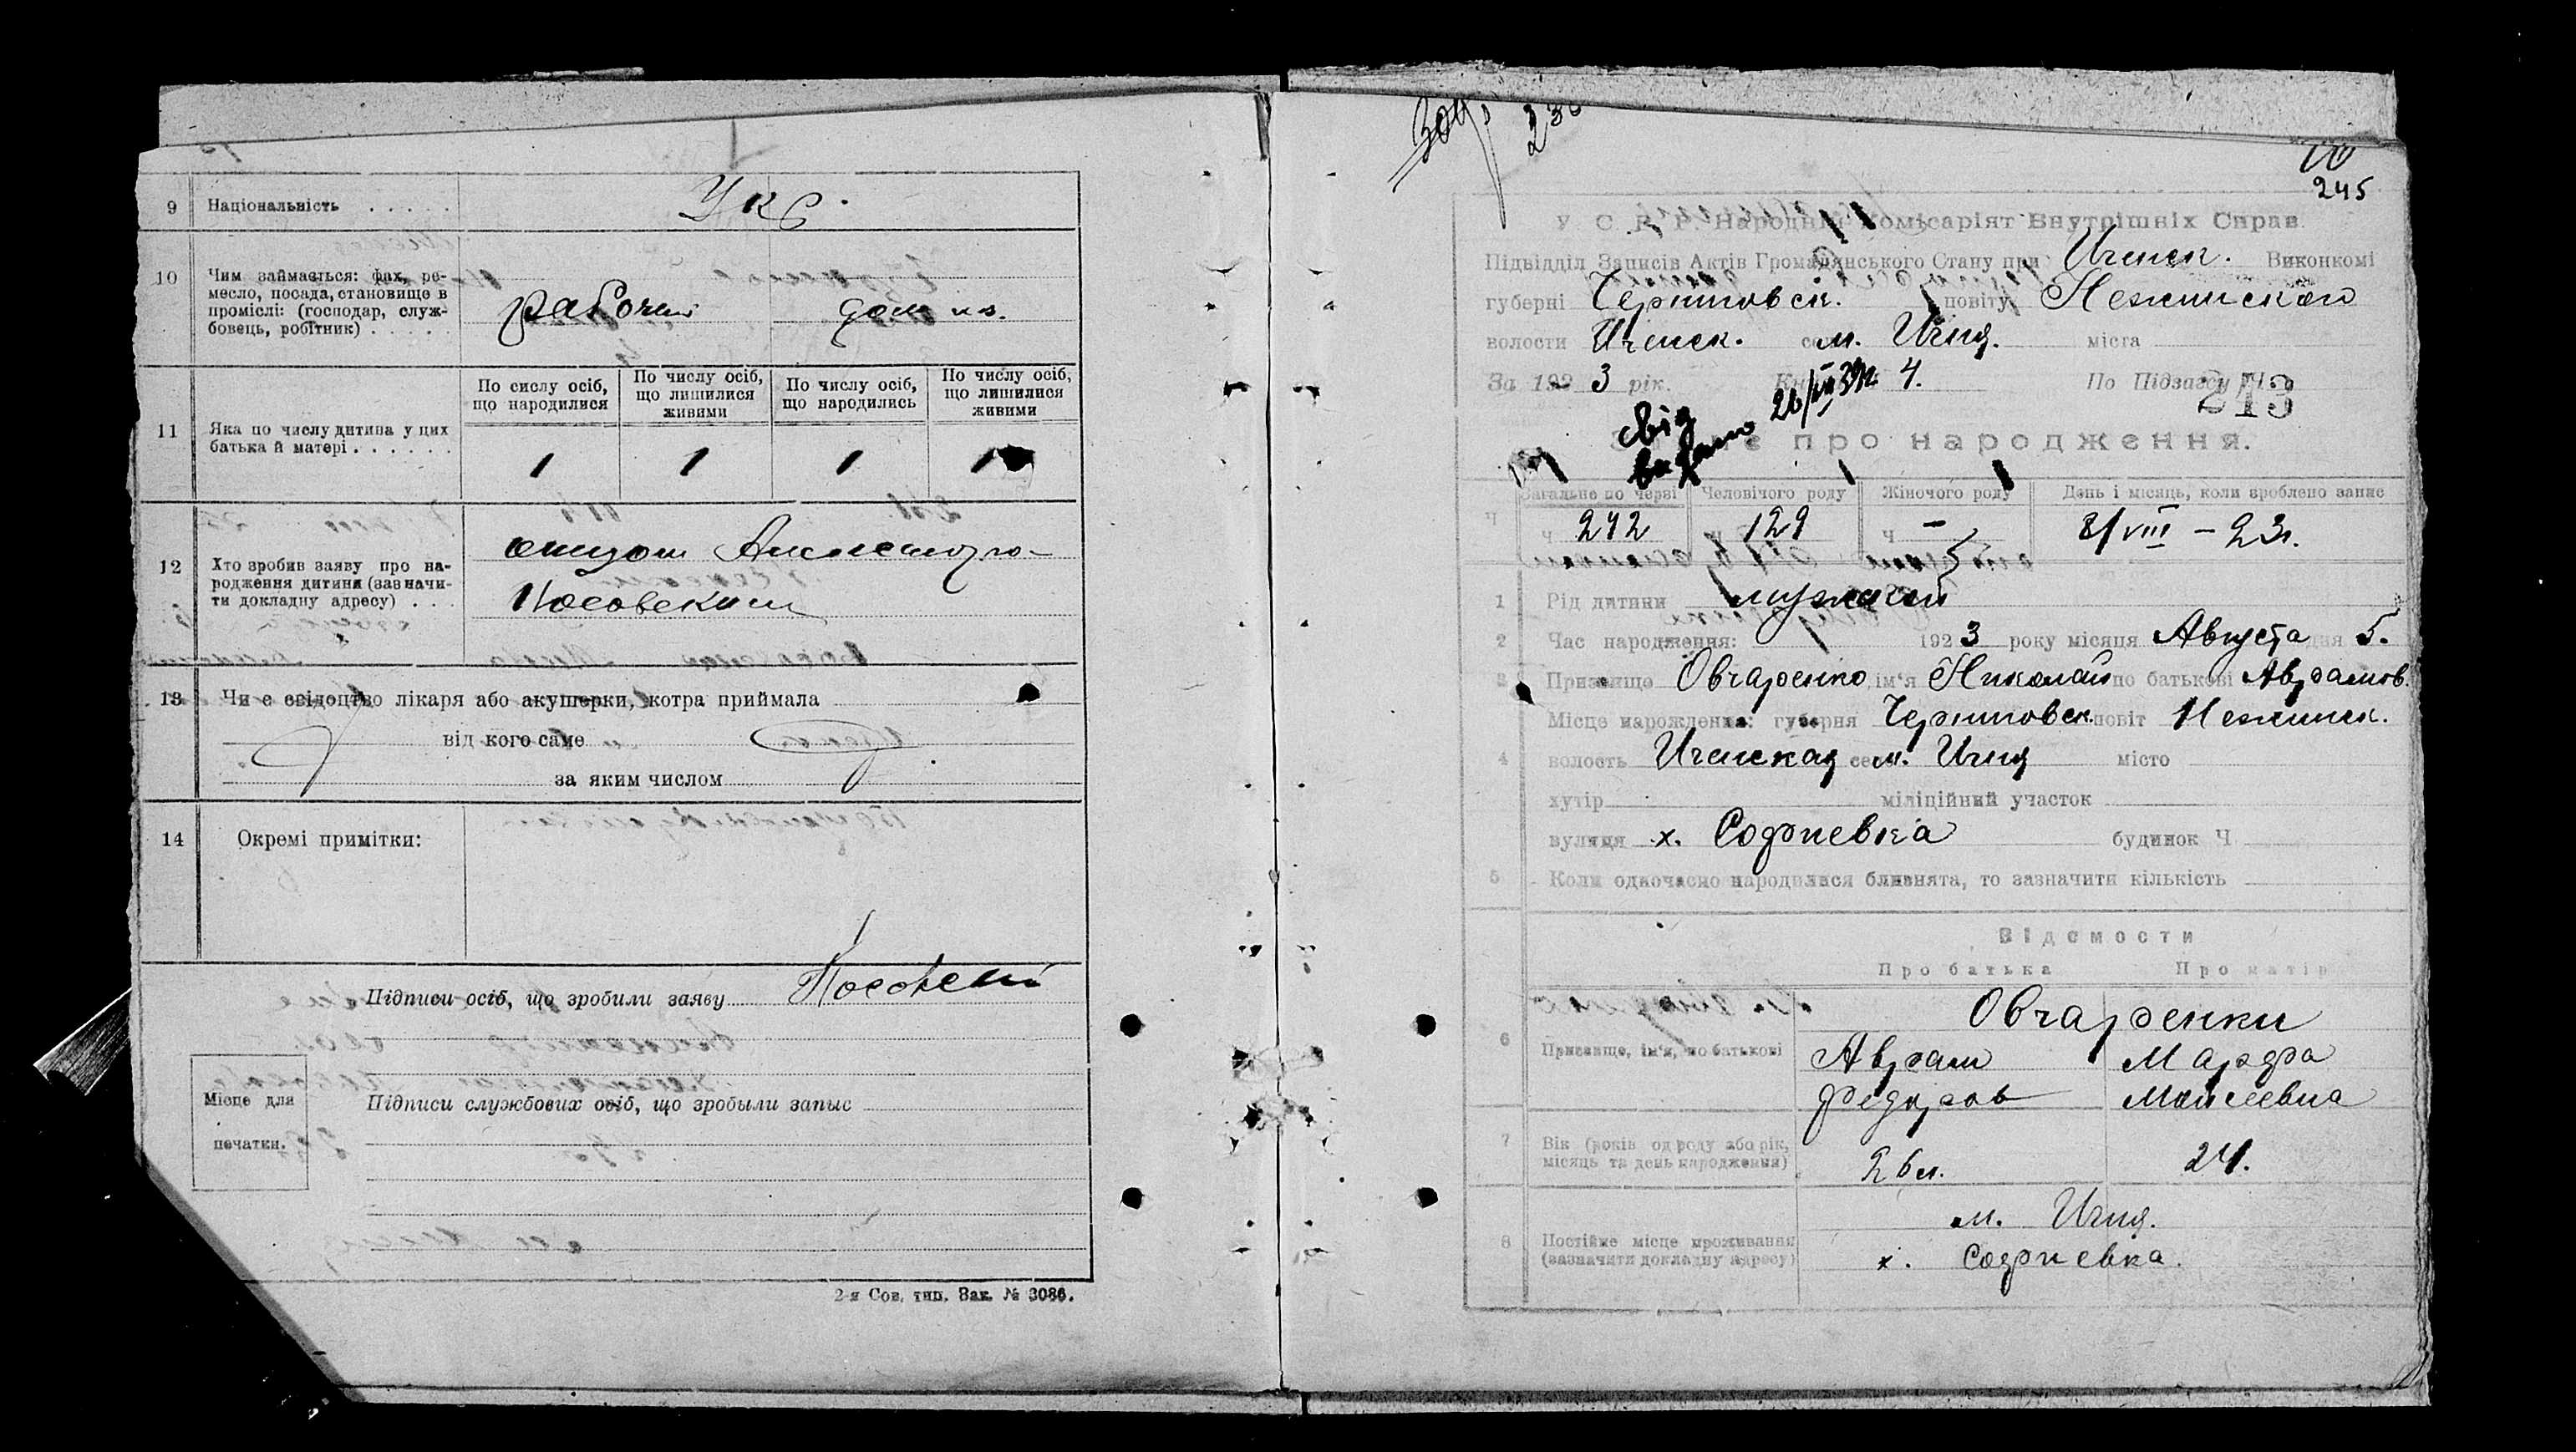 9 Національність . . . . . Укр.
10 Чим займається: фах, ре-
месло, посада, становище в
проміслі: (господар, служ-
бовець, робітник) . . . .
рабочий дом хоз.
По сислу осіб, що народилися
По числу осіб, що лишилися живими
По числу осіб, що народились
По числу осіб, що лишилися живими
11 Яка по числу дитина у цих
батька й матері . . . . . .
1 1 1 1
12 Хто зробив заяву про на-
родження дитини (зазначи-
ти докладну адресу) . . .
отцом
Носовским
13 Чи є свідоцтво лікаря або акушерки, котра приймала
від кого саме
за яким числом
14 Окремі примітки:
Підписи осіб, що зробили заяву
Місце для
печатки.
Підписи службових осіб, що зробыли запыс
2-я Сов. тип. Зак. № 3086.
245
У. С. Р. Р. Народний Комісаріят Внутрішніх Справ
Підвідділ Записів Актів Громадянського Стану при Ичнск. Виконкомі
губерні Черниговск. повіту Нежинского
волости Ичнск. м. Ичня. міста
За 1923 рік. 4. По Підзагсу Ч.
213
свід
видано 26/VII 39р.
Запис про народження.
Загальне по черві Человічого роду Жіночого роду День і місяць, коли зроблено запис
Ч ч 242 ч 129 ч — 8/VIII – 23г.
1 Рід дитини мужской
2 Час народження: 1923 року місяця Августа дня 5.
3 Призвище Овчаренко ім'я Николай по батькові Аврамов.
Місце народження: губерня Черниговск. повіт Нежинск.
4 волость Иченская село м. Ичня місто
хутір міліційний участок
вулиця х. Софиевка будинок Ч
5 Коли одночасно народилися близнята, то зазначити кількість
Відомости
Про батька Про матір
Овчаренки
6 Призвище, ім'я, по батькові
Аврам Марфа
Федоров Моисеевна
7 Вік (років од роду або рік,
місяць та день народження)
26 л. 24.
8 Постійне місце проживання
(зазначити докладну адресу)
м. Ичня.
х. Софиевка.